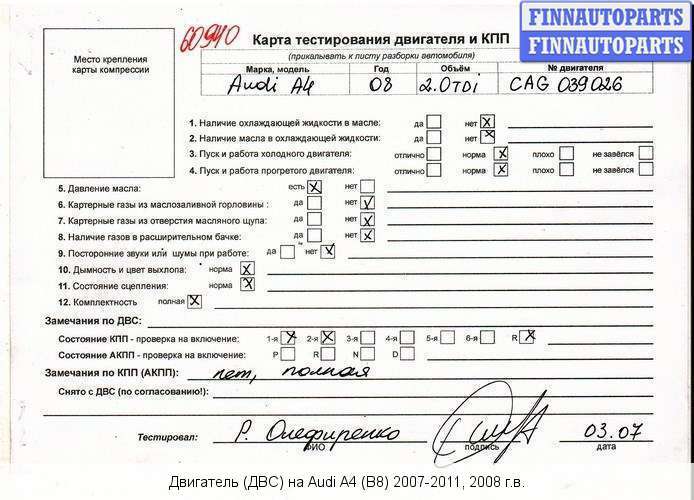 60940
Карта тестирования двигателя и КПП
FINNAUTOPARTS
FINNAUTOPARTS
Место крепления
карты компрессии
(прикалывать к листу разборки автомобиля)
Марка, модель Год Объём № двигателя
Audi A4 08 2.0TDi CAG 039026
1. Наличие охлаждающей жидкости в масле: да нет X
2. Наличие масла в охлаждающей жидкости: да нет X
3. Пуск и работа холодного двигателя: отлично норма X плохо не завёлся
4. Пуск и работа прогретого двигателя: отлично норма X плохо не завёлся
5. Давление масла: есть X нет
6. Картерные газы из маслозаливной горловины : да нет X
7. Картерные газы из отверстия масляного щупа: да нет X
8. Наличие газов в расширительном бачке: да нет X
9. Посторонние звуки или шумы при работе: да нет X
10. Дымность и цвет выхлопа: норма X
11. Состояние сцепления: норма X
12. Комплектность полная X
Замечания по ДВС:
Состояние КПП - проверка на включение: 1-я X 2-я X 3-я 4-я 5-я 6-я R X
Состояние АКПП - проверка на включение: P R N D
Замечания по КПП (АКПП): нет, полная
Снято с ДВС (по согласованию!):
Тестировал: Р. Олефиренко 03.07
ФИО подпись дата
Двигатель (ДВС) на Audi A4 (B8) 2007-2011, 2008 г.в.